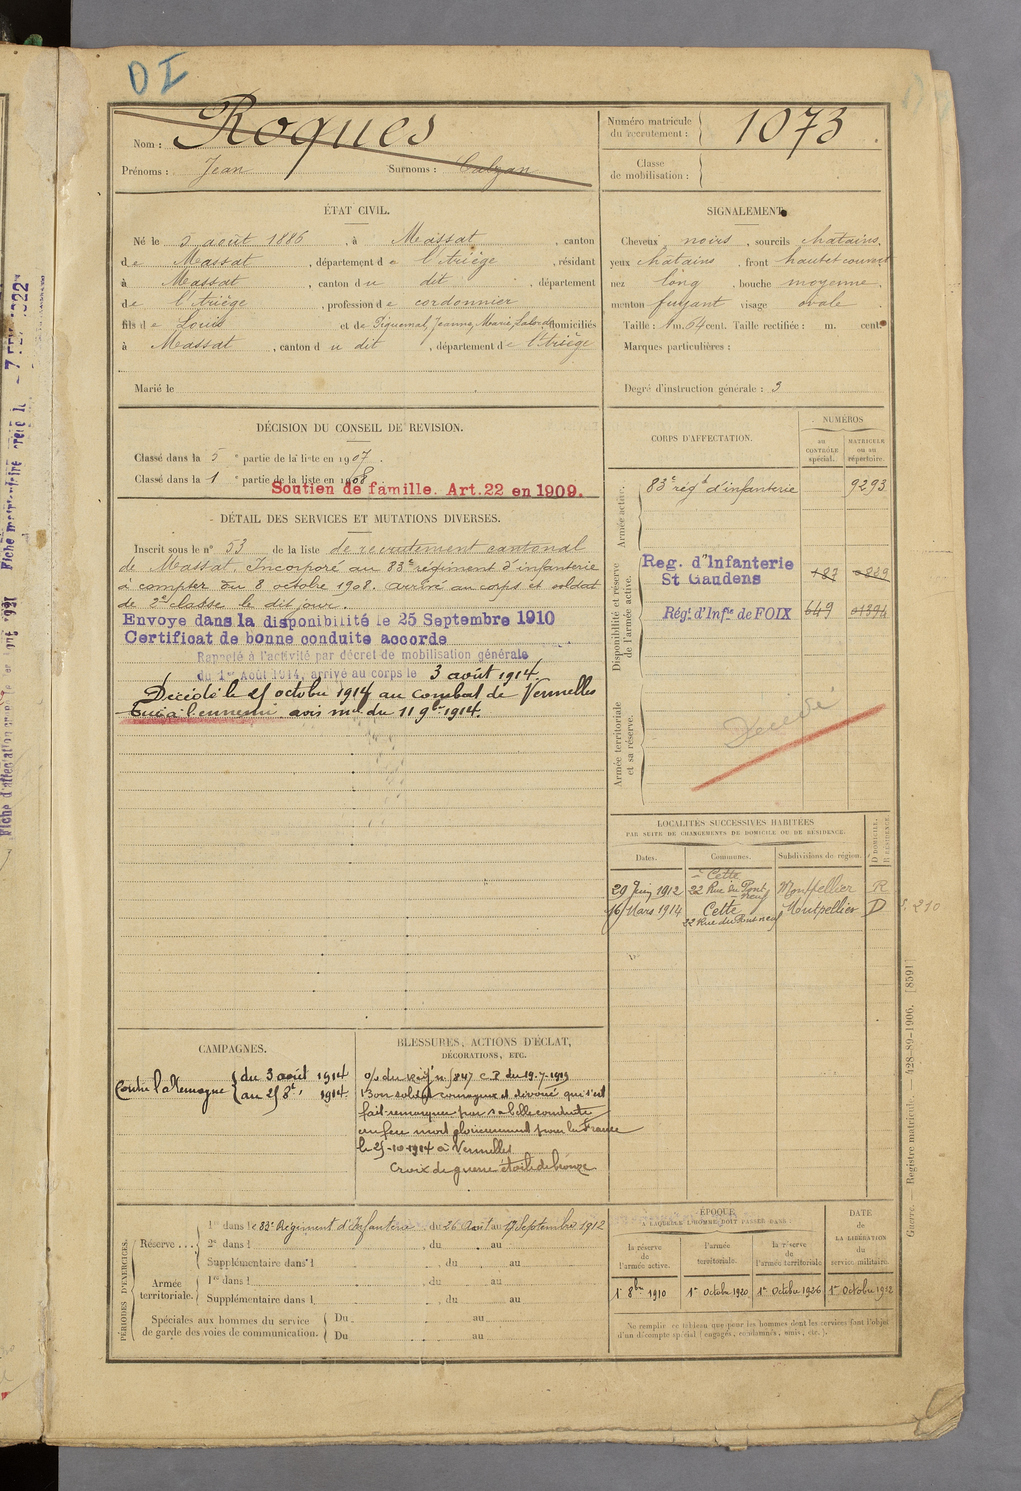 D I
Nom : Roques
Prénoms : Jean Surnoms : Calzan
Numéro matricule
du recrutement : 1073
Classe
de mobilisation :
ÉTAT CIVIL.
Né le 5 août 1886, à Massat, canton
de Massat, département de l'Ariège, résidant
à Massat, canton du dit, département
de l'Ariège, profession de cordonnier
fils de Louis et de Piquemal, Jeanne, Marie, domiciliés
à Massat, canton du dit, département de l'Ariège
Marié le
SIGNALEMENT.
Cheveux noirs, sourcils chatains,
yeux chatains, front haut et couvert
nez long, bouche moyenne,
menton fuyant visage ovale
Taille : 1 m. 64 cent. Taille rectifiée : m. cent.
Marques particulières :
Degré d'instruction générale : 3
DÉCISION DU CONSEIL DE REVISION.
Classé dans la 5e partie de la liste en 1907.
Classé dans la 1 e partie de la liste en 1908
Soutien de famille. Art. 22 en 1909.
DÉTAIL DES SERVICES ET MUTATIONS DIVERSES.
Inscrit sous le n° 53 de la liste de recrutement cantonal
de Massat. Incorporé au 83e régiment d'infanterie
à compter du 8 octobre 1908. arrivé au corps et soldat
de 2e classe le dit jour.
Envoye dans la disponibilité le 25 Septembre 1910
Certificat de bonne conduite accorde
Rappelé à l'activité par décret de mobilisation générale
du 1er Août 1914, arrivé au corps le 3 août 1914.
Décédé le 25 octobre 1914 au combat de Vermelles
tué à l'ennemi avis mel du 11 9bre 1914.
CORPS D'AFFECTATION.
NUMÉROS
au
CONTRÔLE
spécial.
MATRICULE
ou au
répertoire.
Armée active.
83e régt d'infanterie 9293
Disponibilité et réserve
de l'armée active.
Reg. d'Infanterie
St Gaudens
Régt d'Infie de FOIX 649 01394
Armée territoriale
et sa réserve.
Décédé
LOCALITÉS SUCCESSIVES HABITÉES
PAR SUITE DE CHANGEMENTS DE DOMICILE OU DE RÉSIDENCE.
Dates. Communes. Subdivisions de région. D DOMICILE. R RÉSIDENCE.
29 Juin 1912 Cette 22 Rue du Pont neuf Montpellier R
16 Mars 1914 Cette 22 Rue du Pont neuf Montpellier D
CAMPAGNES.
Contre l'allemagne du 3 août 1914
au 25 8bre 1914.
BLESSURES, ACTIONS D'ÉCLAT,
DÉCORATIONS, ETC.
o/ du Régt n° 847 C.P. du 19-7-1919
Bon soldat courageux et dévoué qui s'est
fait remarquer par sa belle conduite
au feu mort glorieusement pour la France
le 25-10-1914 à Vermelles
Croix de guerre étoile de bronze
PÉRIODES D'EXERCICES.
Réserve ....
1re dans le 83e Régiment d'Infanterie, du 26 Août au 17 Septembre 1912
2e dans l , du au
Supplémentaire dans l , du au
Armée
territoriale.
1re dans l , du au
Supplémentaire dans l , du au
Spéciales aux hommes du service
de garde des voies de communication.
Du au
Du au
ÉPOQUE
À LAQUELLE L'HOMME DOIT PASSER DANS :
la réserve
de
l'armée active.
l'armée
territoriale.
la réserve
de
l'armée territoriale
DATE
de
LA LIBÉRATION
du
service militaire.
1er 8bre 1910 1er Octobre 1920 1er Octobre 1926 1er Octobre 1932
Ne remplir ce tableau que pour les hommes dont les services font l'objet
d'un décompte spécial (engagés, condamnés, omis, etc.).
Guerre. — Registre matricule. 428-89-1906. [8591]